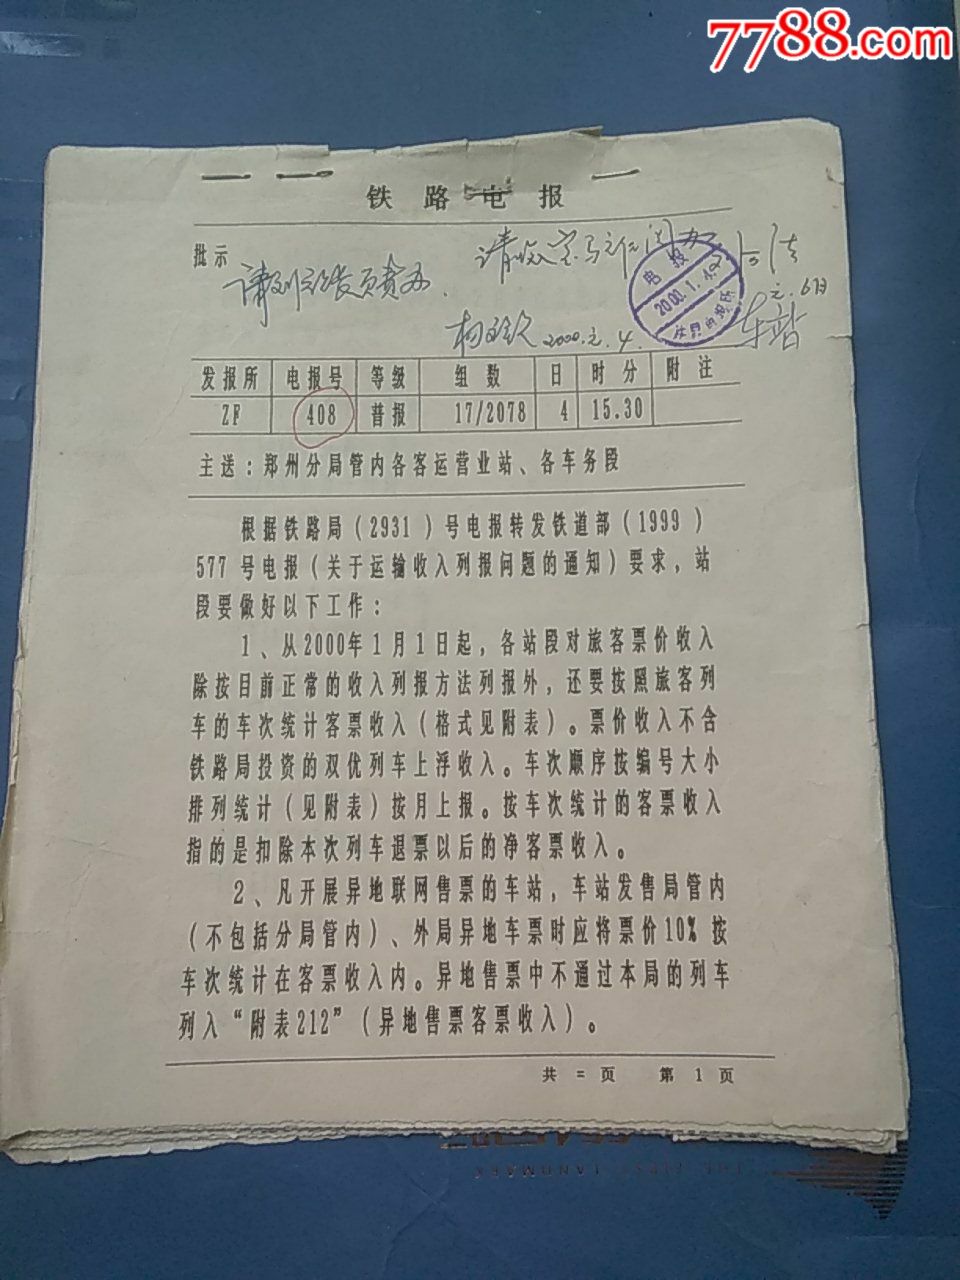 7788.com
铁路电报
批示
2000.元.4.
车站
电报
2000.1.4
发报所 电报号 等级 组数 日 时分 附注
ZF 408 普报 17/2078 4 15.30
主送：郑州分局管内各客运营业站、各车务段
根据铁路局（2931）号电报转发铁道部（1999）
577号电报（关于运输收入列报问题的通知）要求，站
段要做好以下工作：
1、从2000年1月1日起，各站段对旅客票价收入
除按目前正常的收入列报方法列报外，还要按照旅客列
车的车次统计客票收入（格式见附表）。票价收入不含
铁路局投资的双优列车上浮收入。车次顺序按编号大小
排列统计（见附表）按月上报。按车次统计的客票收入
指的是扣除本次列车退票以后的净客票收入。
2、凡开展异地联网售票的车站，车站发售局管内
（不包括分局管内）、外局异地车票时应将票价10%按
车次统计在客票收入内。异地售票中不通过本局的列车
列入“附表212”（异地售票客票收入）。
共 = 页 第 1 页